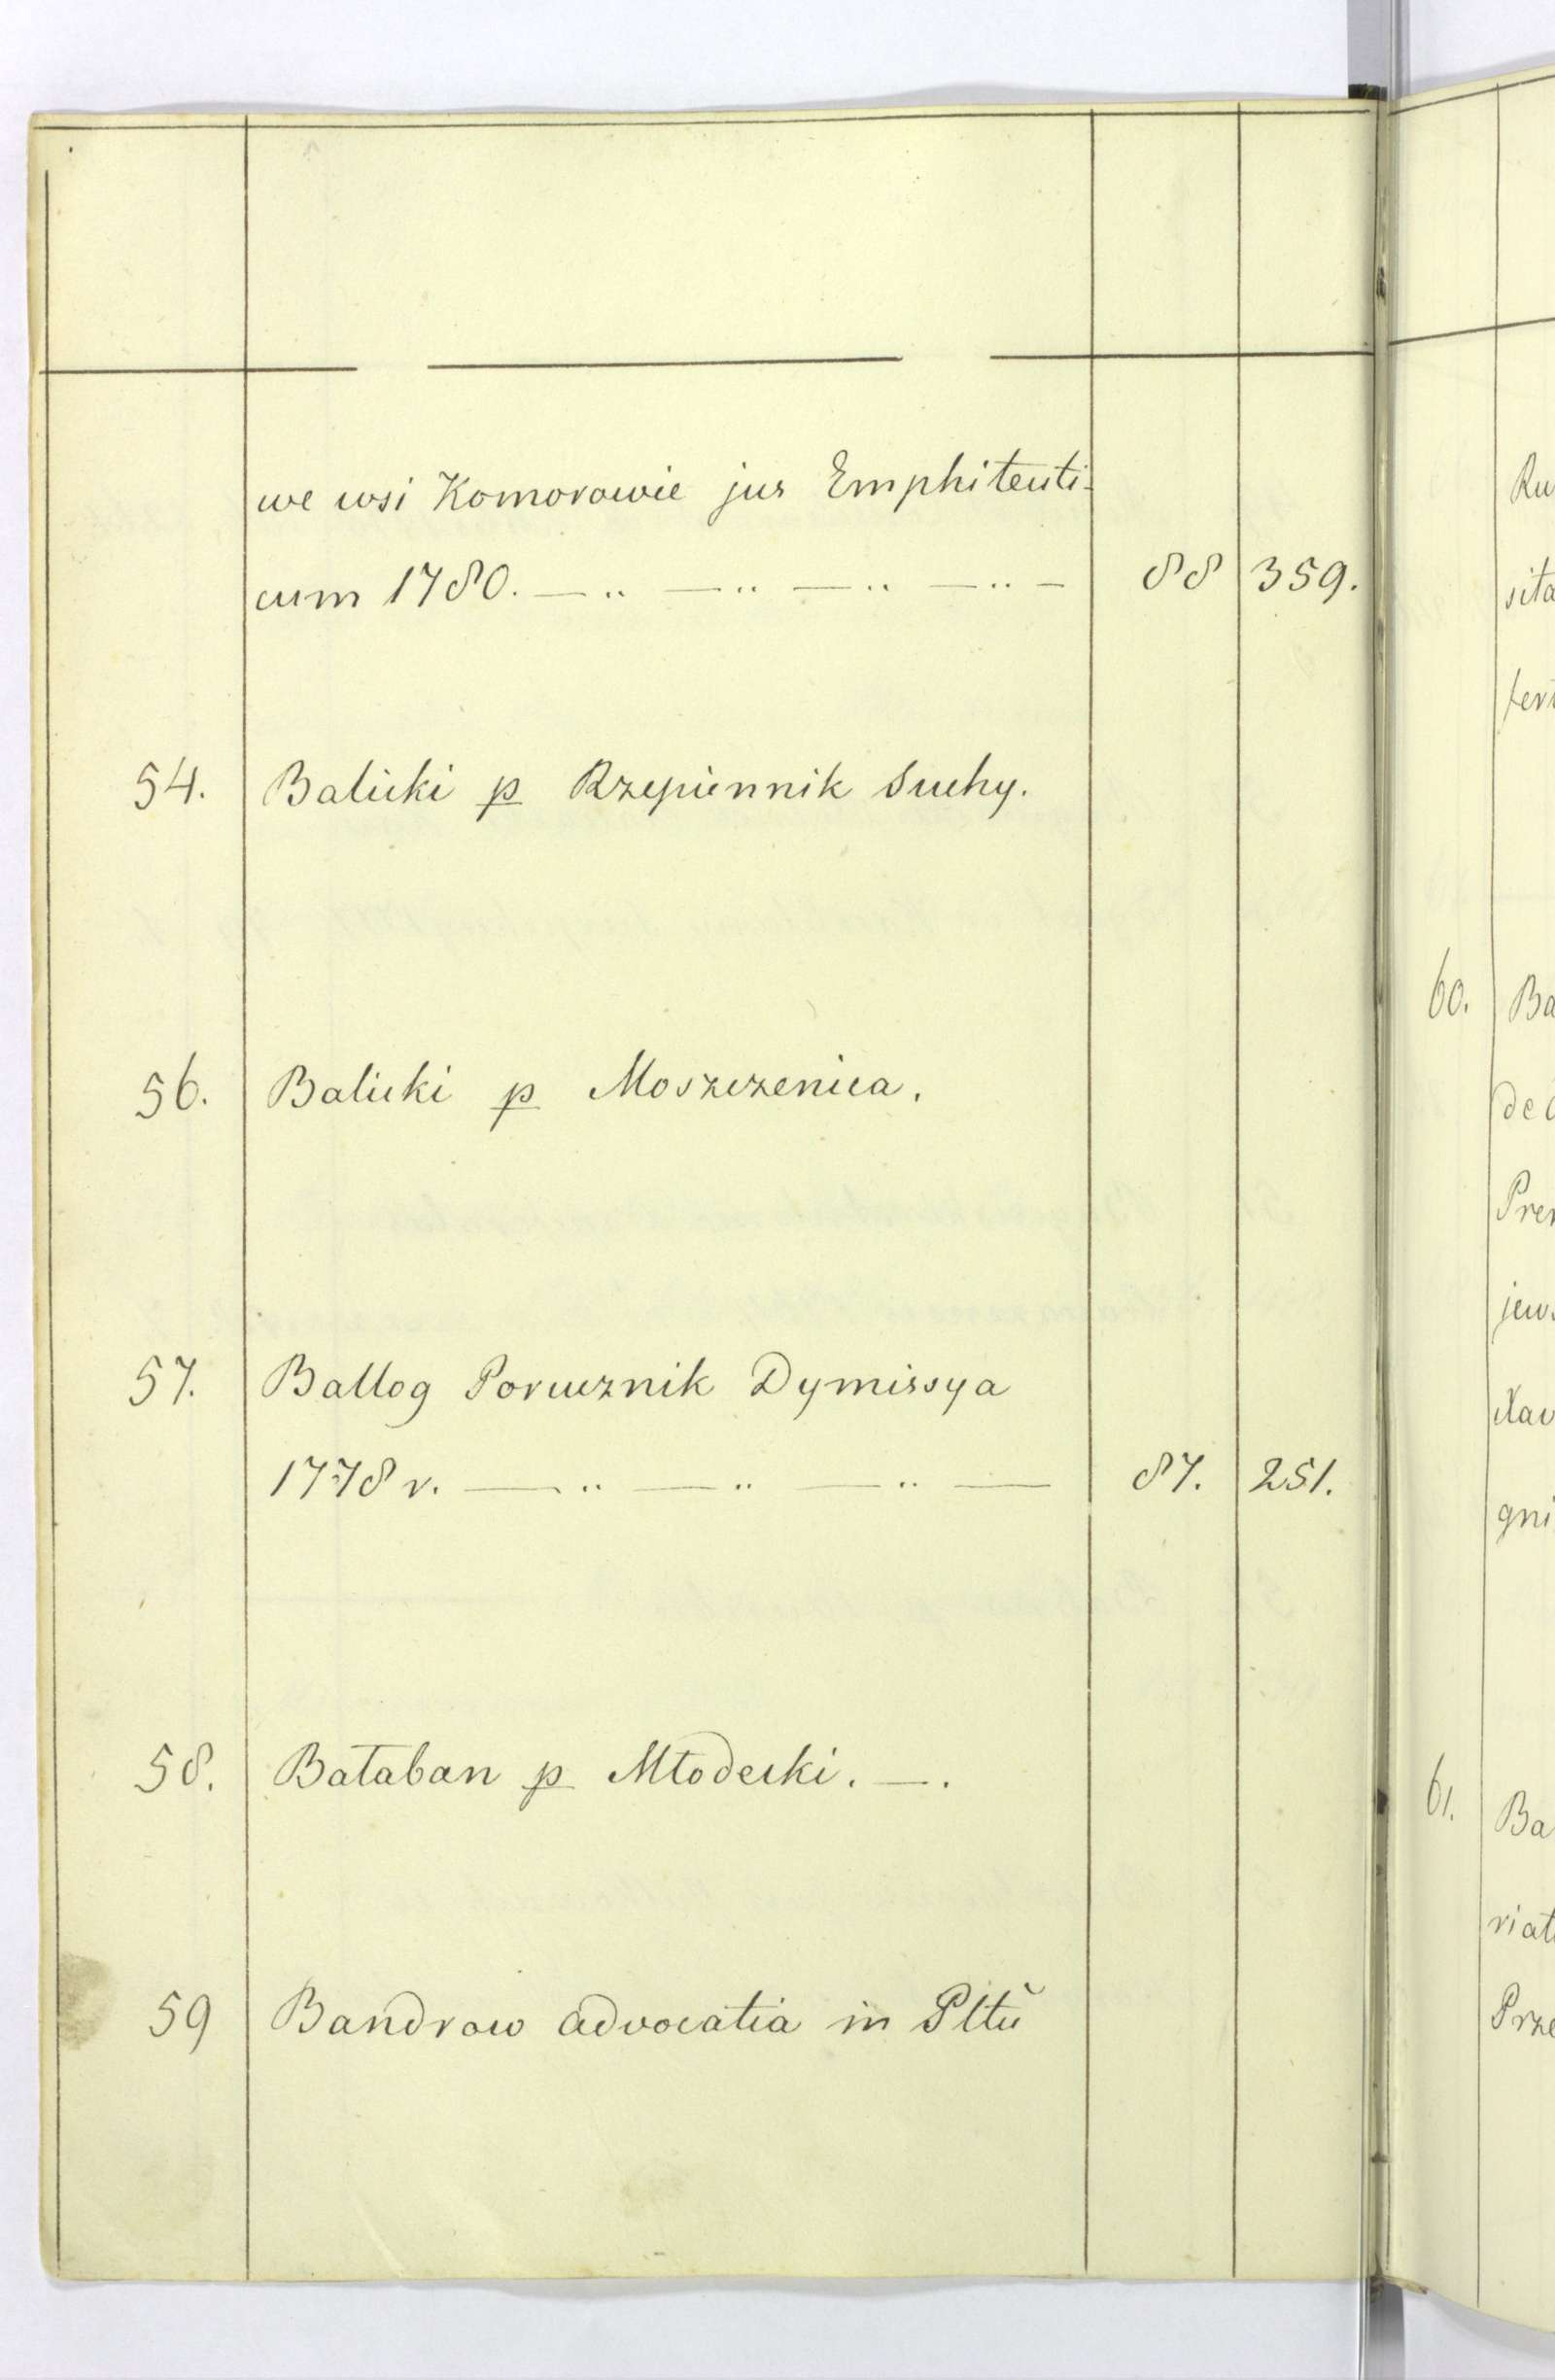 we wsi Komorowie jus Emphiteuti-
cum 1780. — .. — .. — .. — .. — 88 359.
54. Balicki p Rzepiennik Suchy.
56. Balicki p Moszczenica.
57. Ballog Porucznik Dymissya
1778 r. — .. — .. — .. — 87. 251.
58. Bałaban p Młodecki. —.
59 Bandrow advocatia in Pltŭ
Ru
sita
60. Ba
Pre
gni
61. Ba
riat
Prze